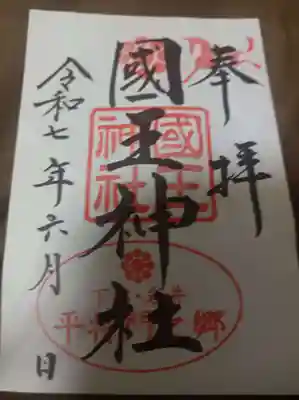 奉拝
國王神社
令和七年六月 日
國王神社
平将門之郷